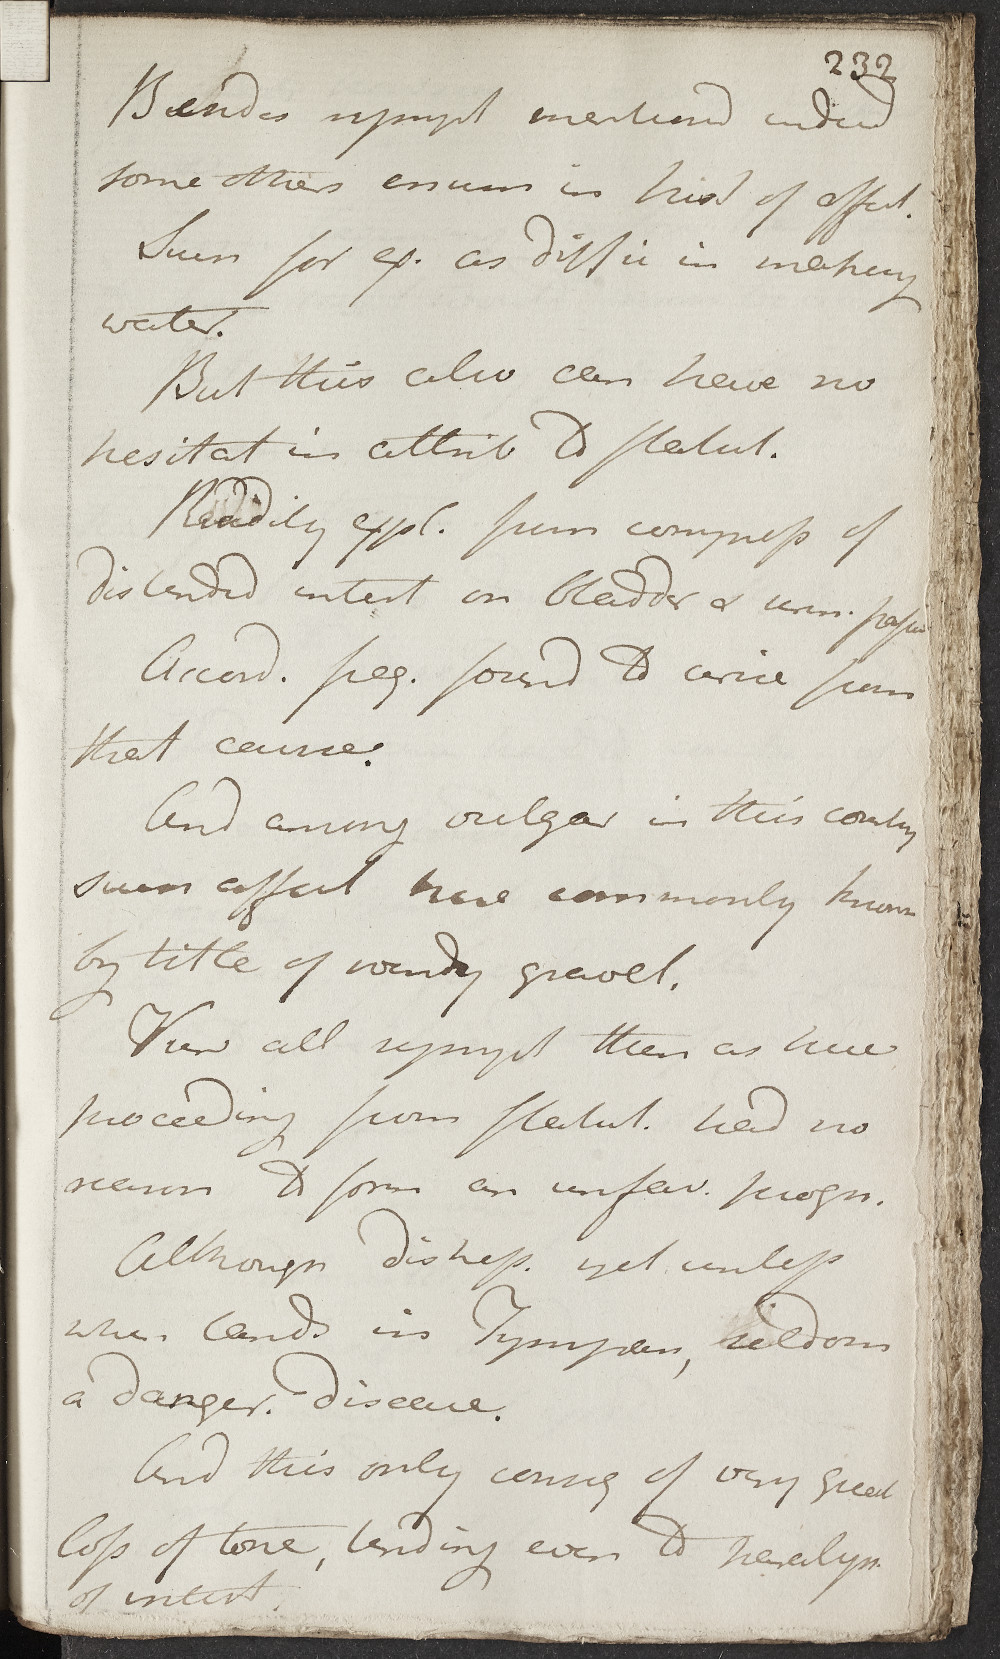 232
Besides sympt mentioned indeed
some others occur in hist of affect.
Such for ex. as diffic in making
water.
But this also can have no
hesitat in attrib to flatul.
Readily expl. from compress of
distended intest on bladder & urin. passa
Accord. freq. found to arise from
that cause.
And among vulgar in this country
such affect here commonly known
by title of windy gravel.
View all sympt then as here
proceeding from flatul. had no
reason to form an unfav. progn.
Although distress. yet unless
when tends in Tympan, seldom
a danger. disease.
And this only conseq of very great
loss of tone, tending even to paralys.
of intest.